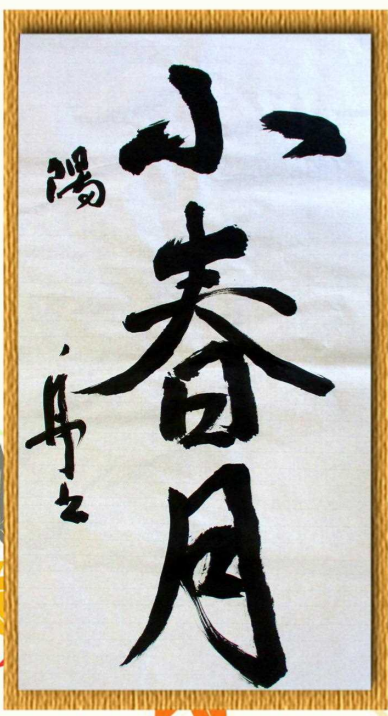 小春月
陽